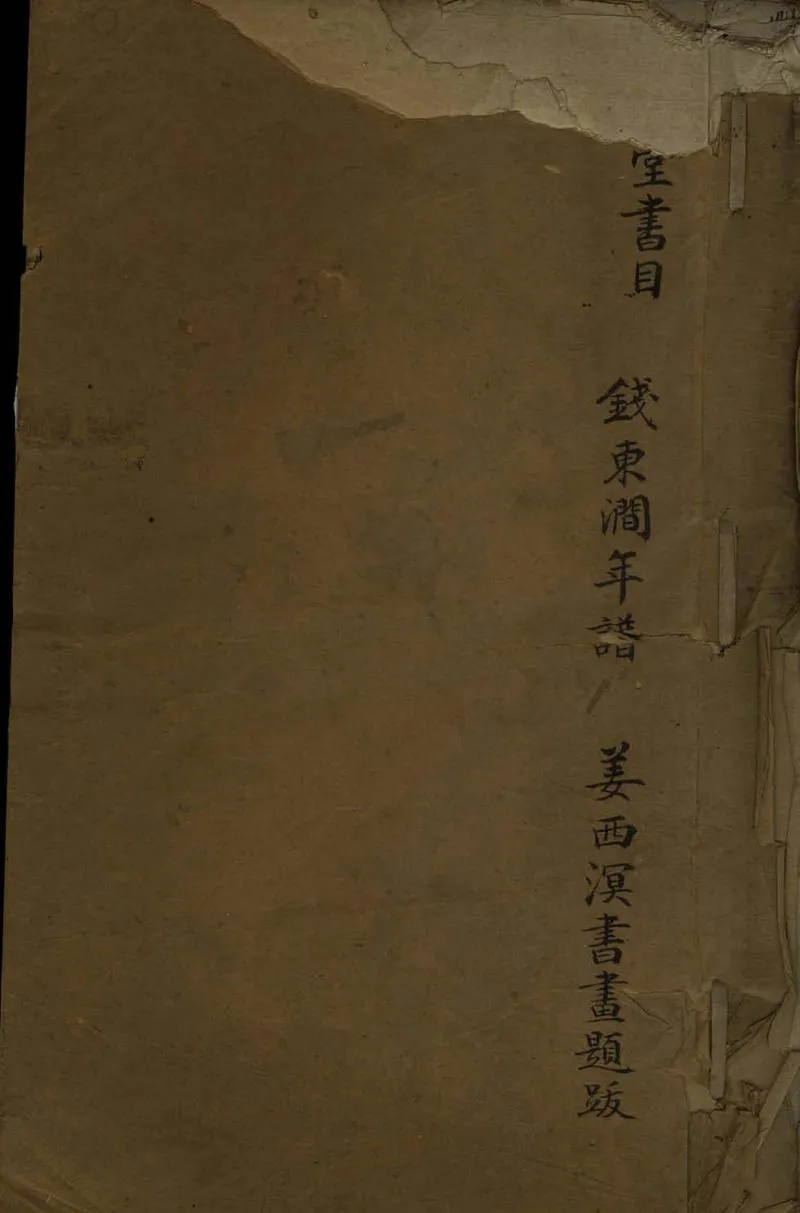 堂書目 錢東澗年譜 姜西溟書畫題跋